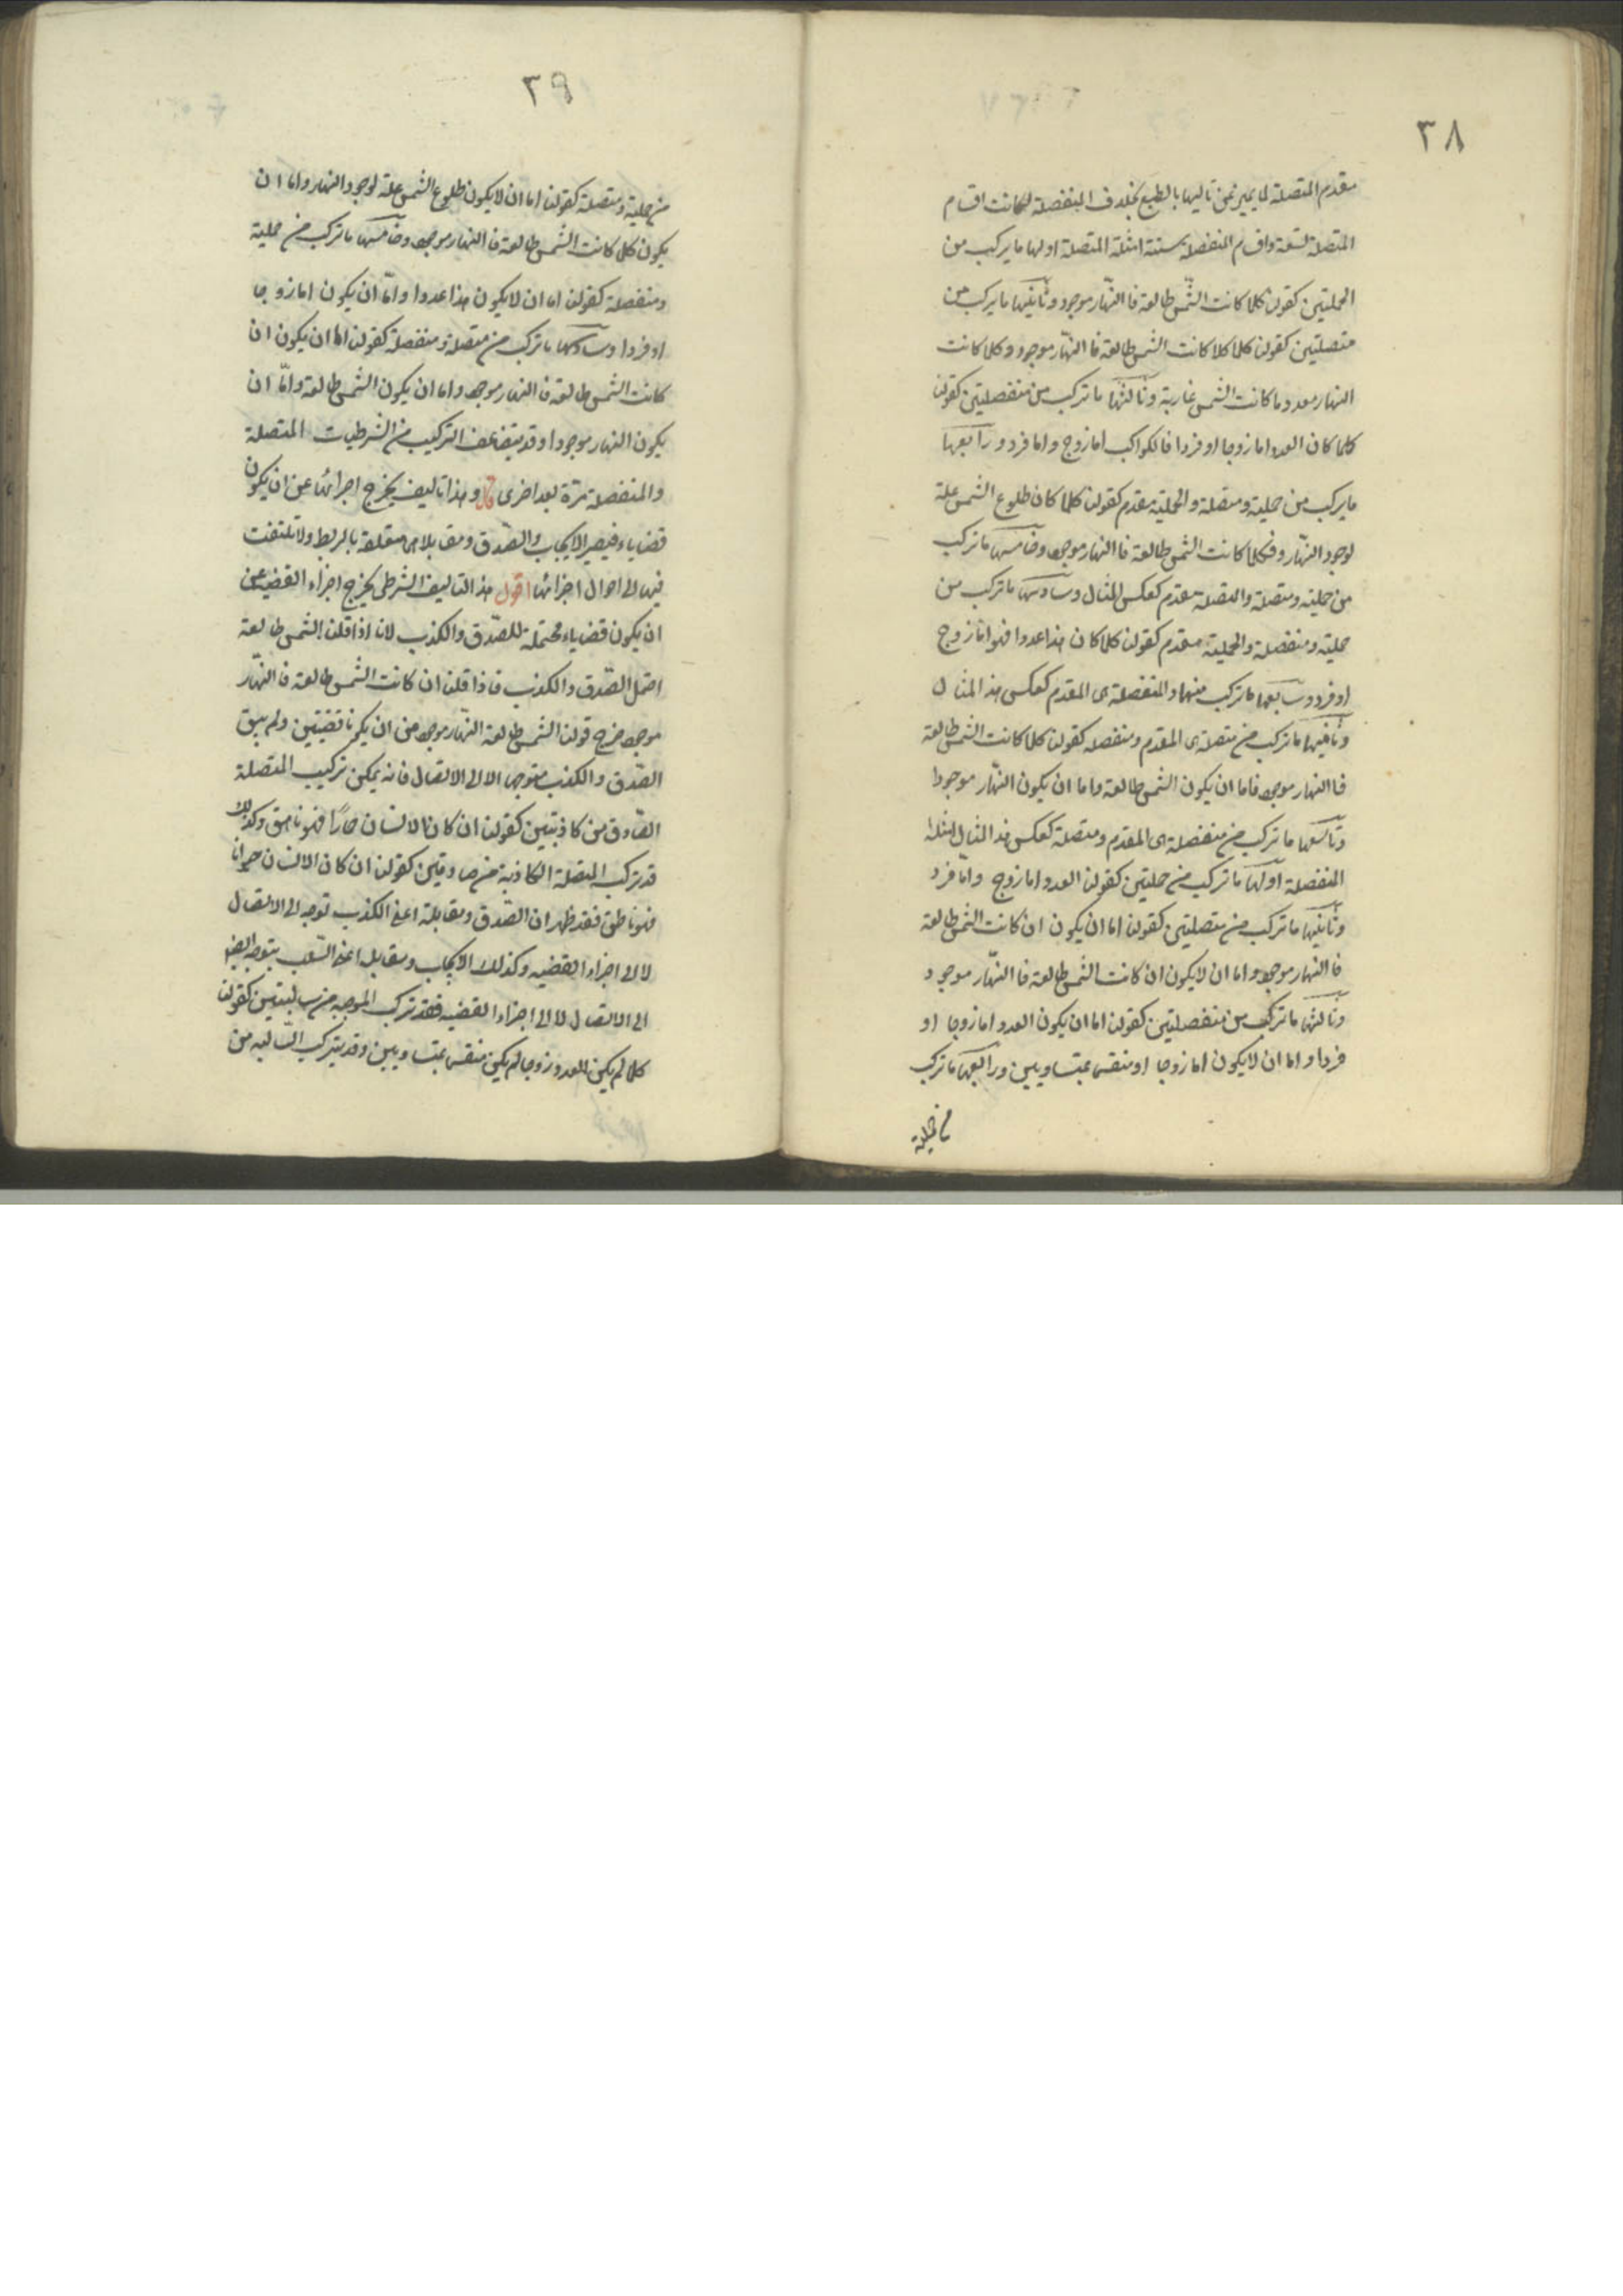 ٣٨
مقدم المتصلة لما يميز عن تاليها بالطبع بخلاف المنفصلة لكانت اقسام
المتصلة تسعة واقسام المنفصلة ستة امثلة المتصلة اولها ما يركب من
الحمليتين كقولنا كلما كانت الشمس طالعة فالنهار موجود وثانيها ما يركب من
متصلتين كقولنا كلما كلما كانت الشمس طالعة فالنهار موجود وكلما كانت
النهار معدوما كانت الشمس غاربة وثالثها ما تركب من منفصلتين كقولنا
كلما كان العدد اما زوجا او فردا فالكواكب اما زوج واما فرد ورابعها
ما يركب من حملية ومتصلة والحملية مقدم كقولنا كلما كان طلوع الشمس علة
لوجود النهار فكلما كانت الشمس طالعة فالنهار موجود وخامسها ما تركب
من حملية ومتصلة والمتصلة مقدم كعكس المثال وسادسها ما تركب من
حملية ومنفصلة والحملية مقدم كقولنا كلما كان هذا عددا فهو اما زوج
او فرد وسابعها ما تركب منهما والمنفصلة هى المقدم كعكس هذا المثال
وثامنيها ما تركب من متصلة هى المقدم ومنفصلة كقولنا كلما كانت الشمس طالعة
فالنهار موجود فاما ان يكون الشمس طالعة واما ان يكون النهار موجودا
وتاسعها ما تركب من منفصلة هى المقدم ومتصلة كعكس هذا المثال امثلة
المنفصلة اولها ما تركب من حمليتين كقولنا العدد اما زوج واما فرد
وثانيها ما تركب من متصلتين كقولنا اما ان يكون ان كانت الشمس طالعة
فالنهار موجود واما ان لا يكون ان كانت الشمس طالعة فالنهار موجود
وثالثها ما تركب من منفصلتين كقولنا اما ان يكون العدد اما زوجا او
فردا واما ان لا يكون اما زوجا او منقسما بمتساويين ورابعها ما تركب
من حملية
٣٩
من حملية ومتصلة كقولنا اما ان لا يكون طلوع الشمس علة لوجود النهار واما ان
يكون كلما كانت الشمس طالعة فالنهار موجود وخامسها ما تركب من حملية
ومنفصلة كقولنا اما ان لا يكون هذا عددا واما ان يكون اما زوجا
او فردا وسادسها ما تركب من متصلة ومنفصلة كقولنا اما ان يكون ان
كانت الشمس طالعة فالنهار موجود واما ان يكون الشمس طالعة واما ان
يكون النهار موجودا وقد يتضاعف التركيب من الشرطيات المتصلة
والمنفصلة مرة بعد اخرى قال وهذا تاليف يخرج اجزائها عن ان يكون
قضايا فيصير الايجاب والصدق ومقابلاهما متعلقة بالربط ولا تلتفت
فيها الى احوال اجزائها اقول هذا التاليف الشرطى يخرج اجزاء القضية عن
ان يكون قضايا محتملة للصدق والكذب لانا اذا قلنا الشمس طالعة
احتمل الصدق والكذب فاذا قلنا ان كانت الشمس طالعة فالنهار
موجود خرج قولنا الشمس طالعة النهار موجود من ان يكونا قضيتين ولم يبق
الصدق والكذب متوجها الا الى الاتصال فانه يمكن تركيب المتصلة
الصادق من كاذبتين كقولنا ان كان الانسان حمارًا فهو ناهق وكذلك
قد تركب المتصلة الكاذبة من صادقتين كقولنا ان كان الانسان حيوانا
فهو ناطق فقد ظهر ان الصدق ومقابله اعنى الكذب توجه الى الاتصال
لا الى اجزاء القضيه وكذلك الايجاب ومقابله اعنى السلب يتوجه ايضا
الى الاتصال لا الى اجزاء القضيه فقد تركب الموجبه من سالبتين كقولنا
كلما لم يكن العدد زوجا لم يكن منقسما بمتساويين وقد يتركب السالبه من